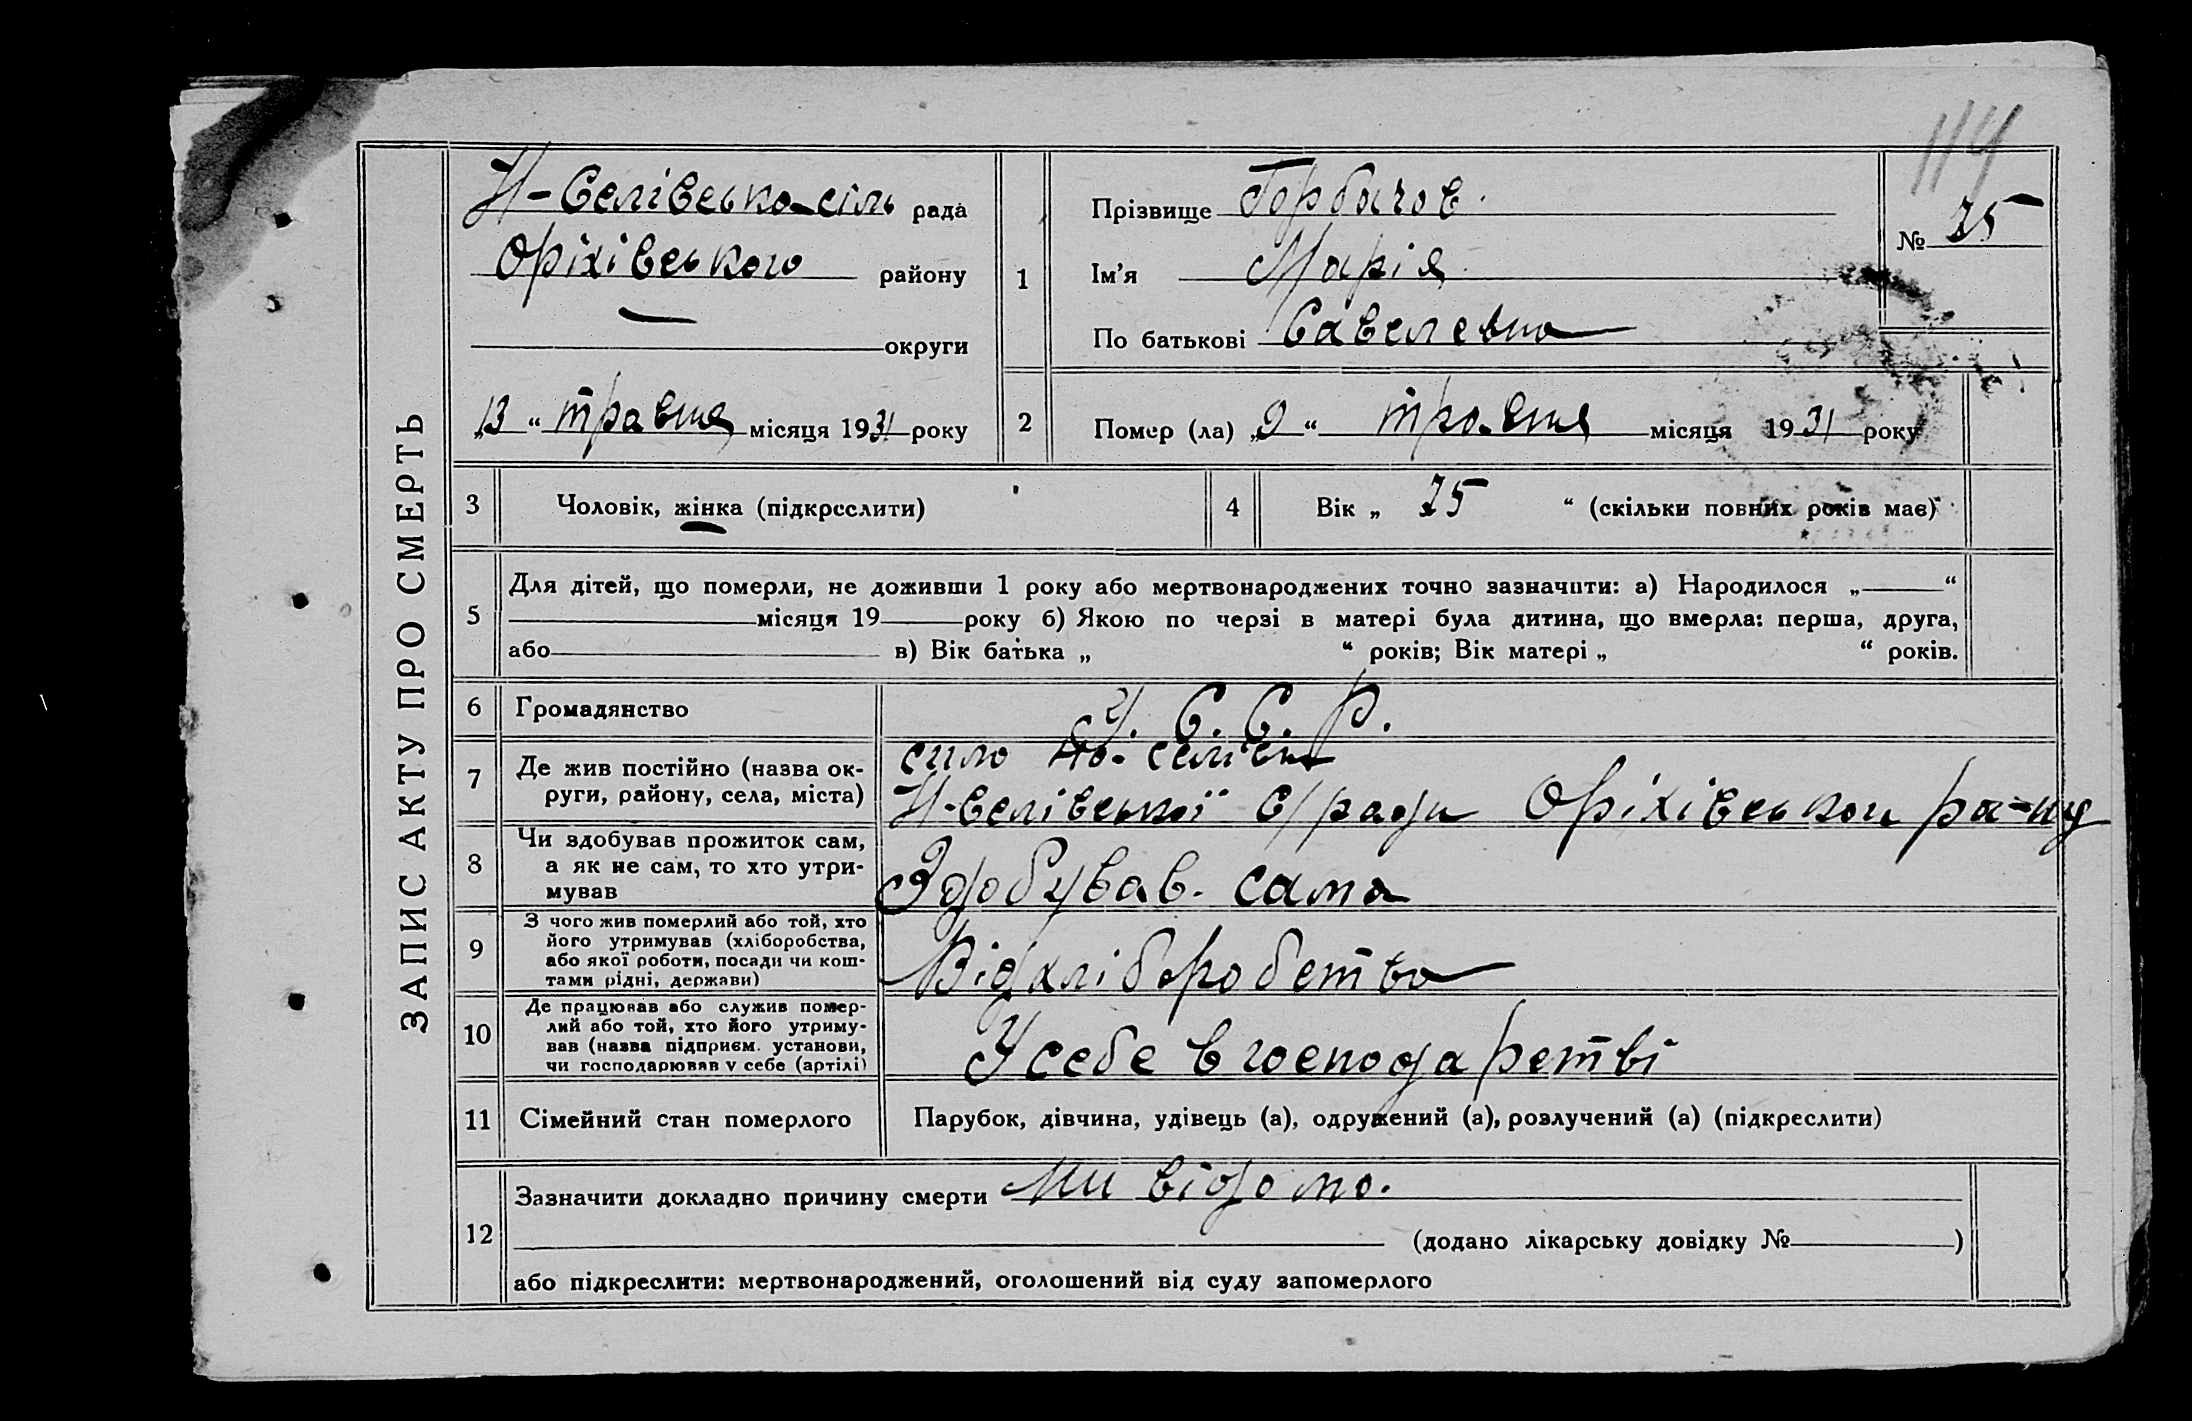 114
ЗАПИС АКТУ ПРО СМЕРТЬ
Н-Селівська сіль рада
Оріхівського району
— округи
„13“ травня місяця 1931 року
1
Прізвище Горбачов.
Ім’я Марія
По батькові Савелевна
№ 25
2
Помер (ла) „9“ травня місяця 1931 року
3 Чоловік, жінка (підкреслити)
4 Вік „ 25 “ (скільки повних років має)
5 Для дітей, що померли, не доживши 1 року або мертвонароджених точно зазначити: а) Народилося „ “
місяця 19 року б) Якою по черзі в матері була дитина, що вмерла: перша, друга,
або в) Вік батька „ “ років; Вік матері „ “ років.
6 Громадянство У. С. С. Р.
7 Де жив постійно (назва ок-
руги, району, села, міста)
село Но-
Н-Селівської с/ради Оріхівського ра-ну
8 Чи здобував прожиток сам,
а як не сам, то хто утри-
мував
Здобував. сама
9 З чого жив померлий або той, хто
його утримував (хліборобства,
або якої роботи, посади чи кош-
тами рідні, держави)
Від хліборобства
10 Де працював або служив помер-
лий або той, хто його утриму-
вав (назва підприєм. установи,
чи господарював у себе (артілі)
У себе в господарстві
11 Сімейний стан померлого Парубок, дівчина, удівець (а), одружений (а), розлучений (а) (підкреслити)
12 Зазначити докладно причину смерти ни відомо.
(додано лікарську довідку № )
або підкреслити: мертвонароджений, оголошений від суду запомерлого